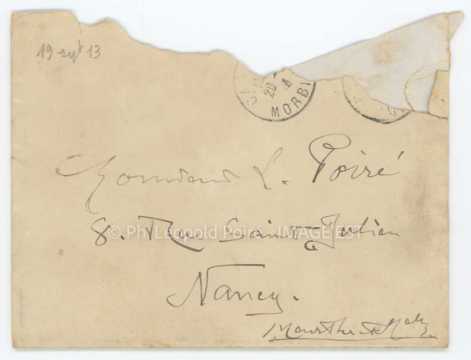 19 sept 13
MORBI
Monsieur L. Poiré
8. Rue Saint-Julien
© Ph Léopold Poiré / IMAGE EST
Nancy.
Meurthe & Mlle